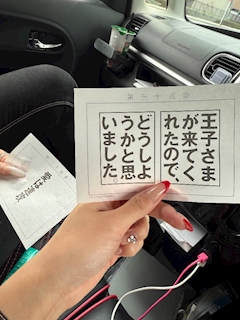 王子さま
が来てく
れたので、
どうしよ
うかと思
いました。
愛は